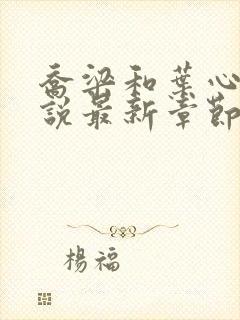 喬梁和葉心
說最新章節
楊福